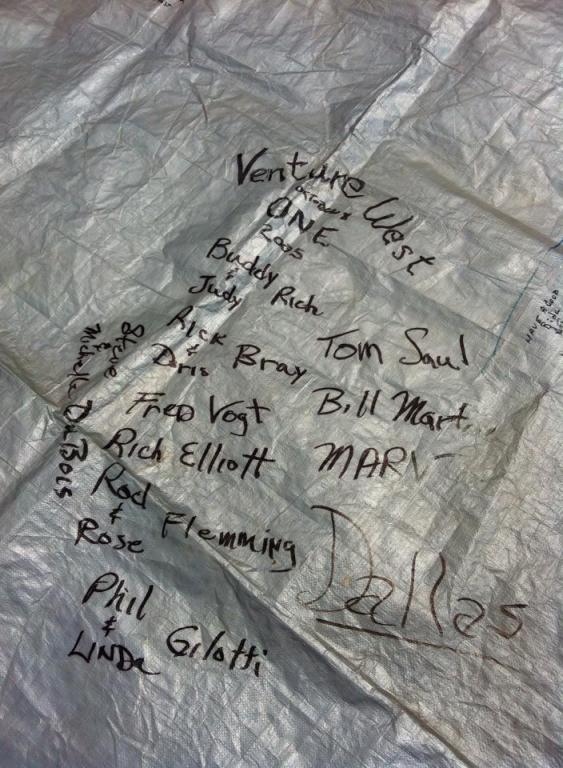 Venture West
ONE
2005
Buddy
& Rich
Judy
Rick
& Bray
Doris
Fred Vogt
Rich Elliott
Rod
& Flemming
Rose
Phil
& Gilotti
LINDa
Steve
&
Michelle DuBois
Tom Saul
Bill Mart
MARV
Dallas
HAVE A GOOD